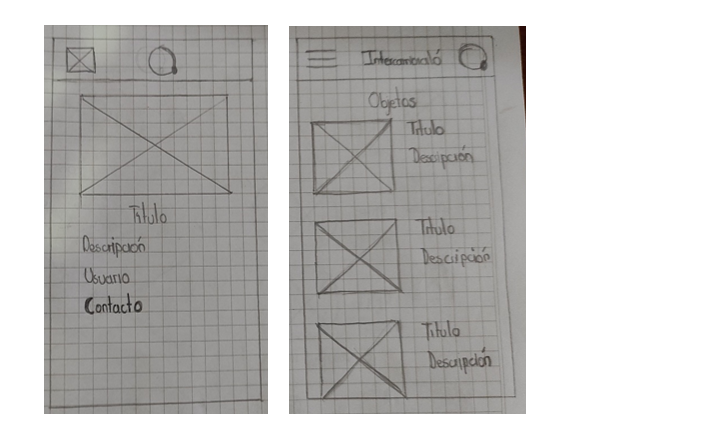 Título
Descripción
Usuario
Contacto
Intercambialó
Objetos
Título
Descipción
Título
Descripción
Título
Descripción